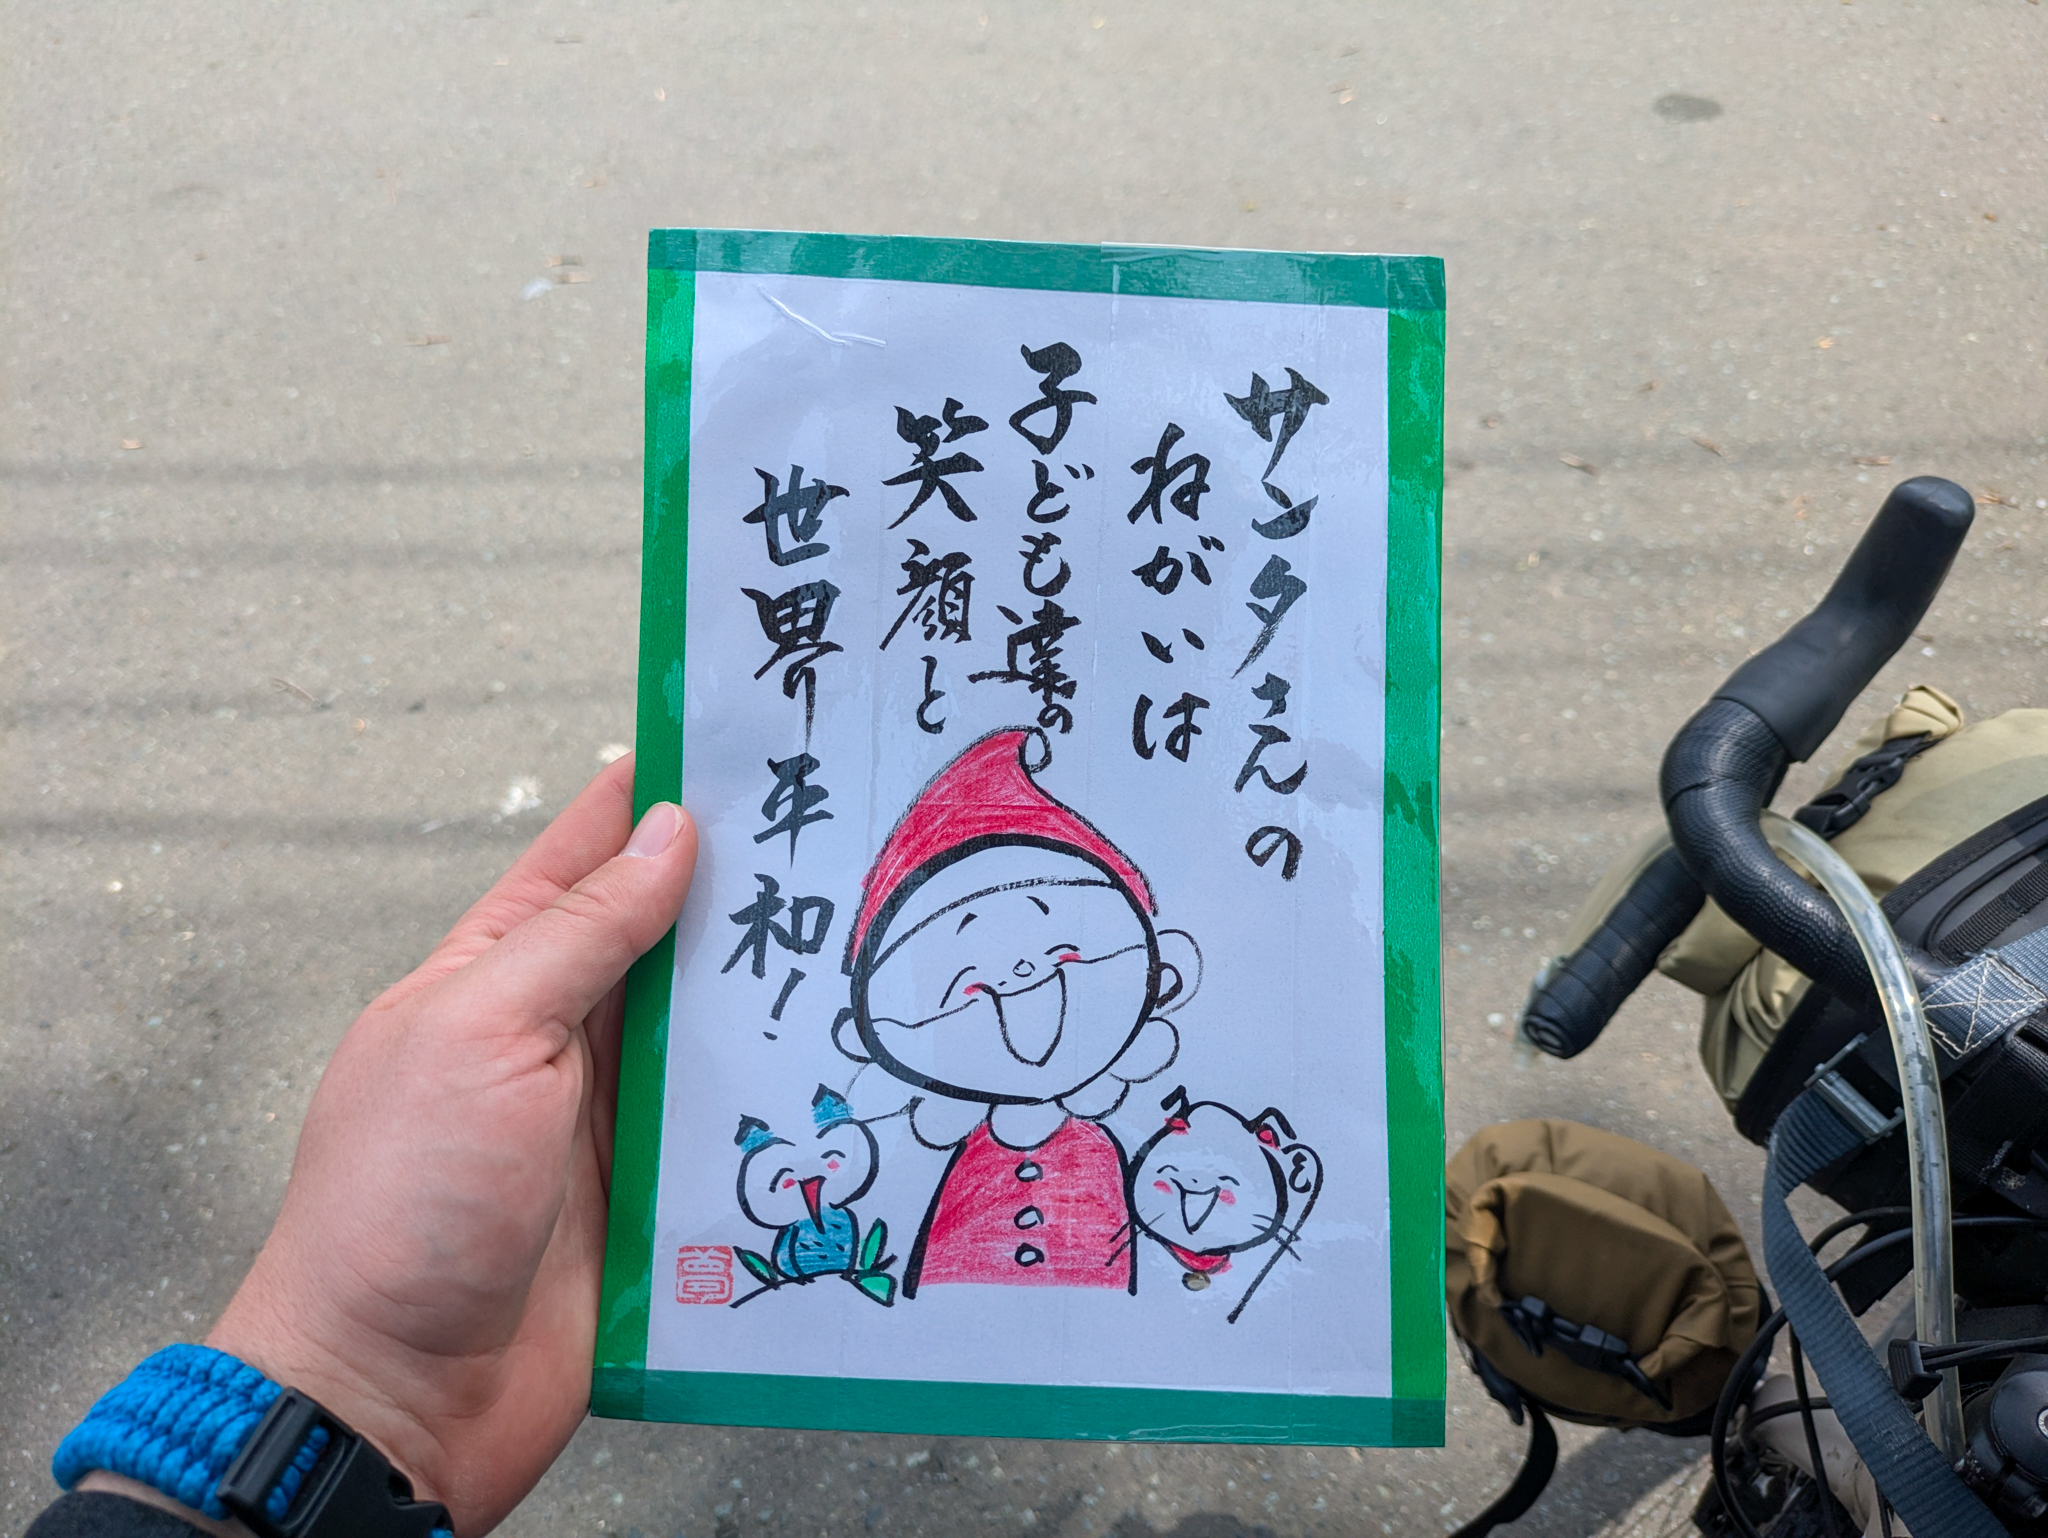 サンタさんの
ねがいは
子ども達の
笑顔と
世界平和!